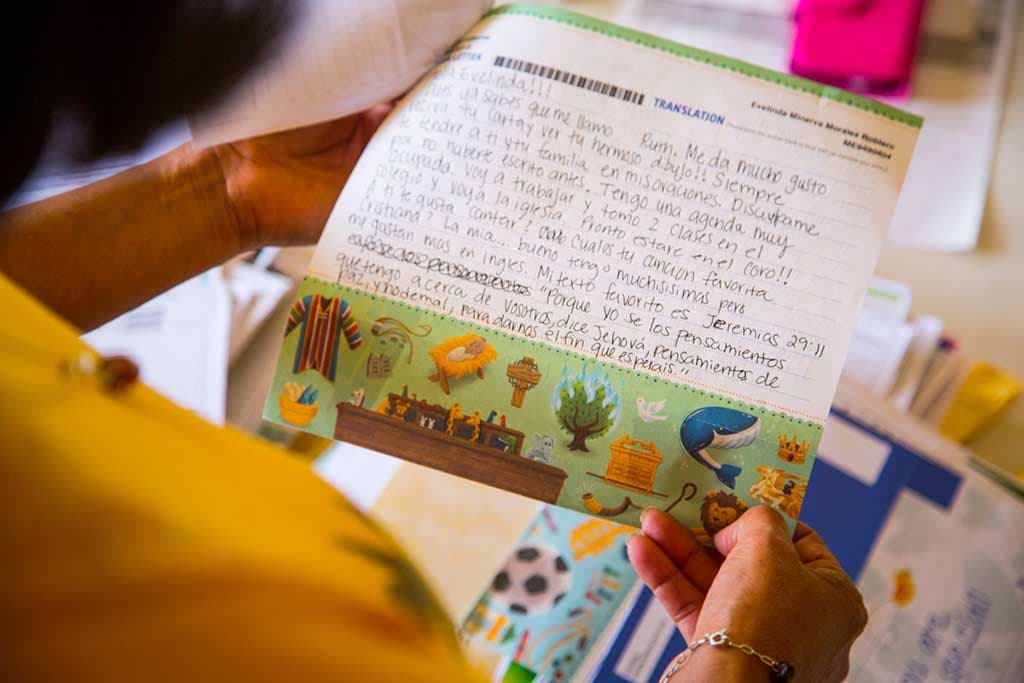 TRANSLATION
Evelinda Minerva Morales Roblero
ME9490404
Evelinda!!!
ya sabes que me llamo Ruth. Me da mucho gusto
tu carta y ver tu hermoso dibujo!! Siempre
te tendre a ti y tu familia en mis oraciones. Disculpame
por no haberte escrito antes. Tengo una agenda muy
ocupada. Voy a trabajar y tomo 2 clases en el
colegio y voy a la iglesia. Pronto estare en el coro!!
A ti te gusta cantar? Cual es tu canción favorita
Cristiana? La mia... bueno tengo muchisisimas pero
me gustan mas en ingles. Mi texto favorito es Jeremias 29:11
"Porque yo se los pensamientos
que tengo acerca de vosotros, dice Jehová, pensamientos de
paz, y no de mal, para darnos el fin que esperais."